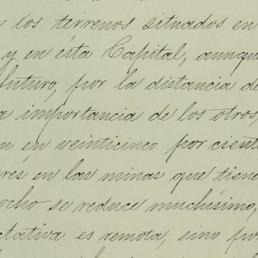 y los terrenos situados en
y en ésta Capital, aunque
futuro, por la distancia de
a importancia de los otros,
n en veinticinco por ciento
res en las minas que tiene
ocho se reduce muchísimo,
ctativa es remota, sino por